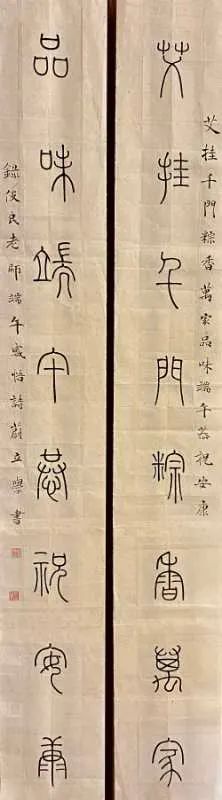 艾挂千門粽香萬家品味端午恭祝安康
艾挂千門粽香萬家
品味端午恭祝安康
錄俊民老師端午感悟詩蔚立學書